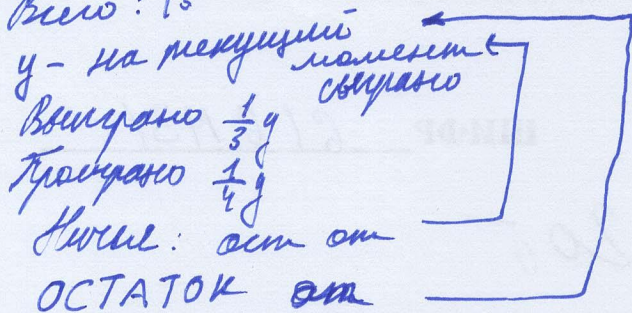 Всего: 18
y - на текущий
момент
сыграно
Выиграно 1/3 y
Проиграно 1/4 y
Ничья: ост от
ОСТАТОК от